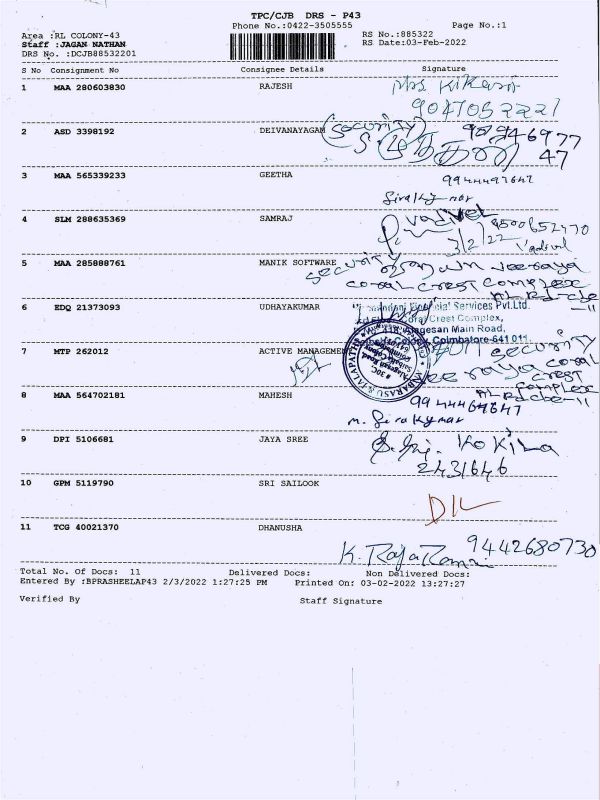 TPC/CJB DRS - P43
Phone No.:0422-3505555 Page No.:1
Area :RL COLONY-43 RS No.:885322
Staff :JAGAN NATHAN RS Date:03-Feb-2022
DRS No. :DCJB88532201
S No Consignment No Consignee Details Signature
1 MAA 280603830 RAJESH
9047052221
2 ASD 3398192 DEIVANAYAGAM (Security)
47
3 MAA 565339233 GEETHA
9944497647
4 SLM 288635369 SAMRAJ Vadivel 9500652470
3/2/22 Vadivel
5 MAA 285888761 MANIK SOFTWARE Security
Coral Crest Complex
6 EDQ 21373093 UDHAYAKUMAR Financial Services Pvt.Ltd.
Coral Crest Complex,
Alagesan Main Road,
Colony, Coimbatore-641 011.
7 MTP 262012 ACTIVE MANAGEMENT Security
Coral
Crest
Complex
8 MAA 564702181 MAHESH 9944464647
M. Sirakumar
9 DPI 5106681 JAYA SREE Kokila
2431646
10 GPM 5119790 SRI SAILOOK
11 TCG 40021370 DHANUSHA
K. Raja 9442680730
Total No. Of Docs: 11 Delivered Docs: Non Delivered Docs:
Entered By :BPRASHEELAP43 2/3/2022 1:27:25 PM Printed On: 03-02-2022 13:27:27
Verified By Staff Signature